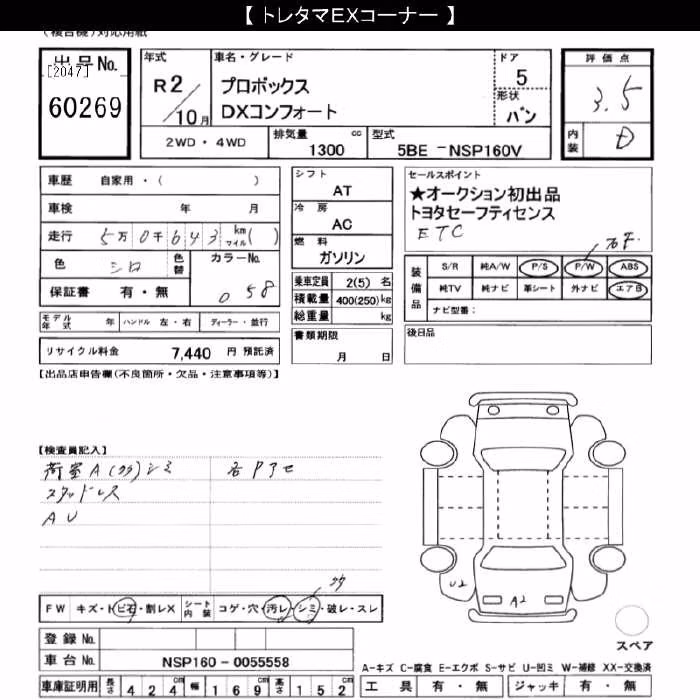 【 トレタマEXコーナー 】
(複合機)対応用紙
出品No.
[2047]
60269
年式
R2/10月
車名・グレード
プロボックス
DXコンフォート
ドア
5
形状
バン
評価点
3.5
内装
D
2WD・4WD
排気量 1300 cc
型式 5BE -NSP160V
車歴 自家用・( )
車検 年 月
走行 5万0千643 km マイル( )
色 シロ 色替
カラーNo. 058
保証書 有・無
モデル年式 年 ハンドル 左・右 ディーラー・並行
リサイクル料金 7,440 円 預託済
シフト
AT
冷房
AC
燃料
ガソリン
乗車定員 2(5) 名
積載量 400(250)kg
総重量 kg
書類期限
月 日
セールスポイント
★オークション初出品
トヨタセーフティセンス
ETC
装備品
S/R 純A/W P/S P/W ABS
純TV 純ナビ 革シート 外ナビ エアB
ナビ型番:
後日品
【出品店申告欄(不良箇所・欠品・注意事項等)】
【検査員記入】
荷室A(クケ)シミ
各Pアセ
スタッドレス
AU
FW キズ・トビ石・割レX シート内装 コゲ・穴・汚レ・シミ・破レ・スレ
登録No.
車台No. NSP160-0055558
車庫証明用 長さ 424cm 幅 169cm 高さ 152cm
U2
A2
スペア
A-キズ C-腐食 E-エクボ S-サビ U-凹ミ W-補修 XX-交換済
工具 有・無 ジャッキ 有・無